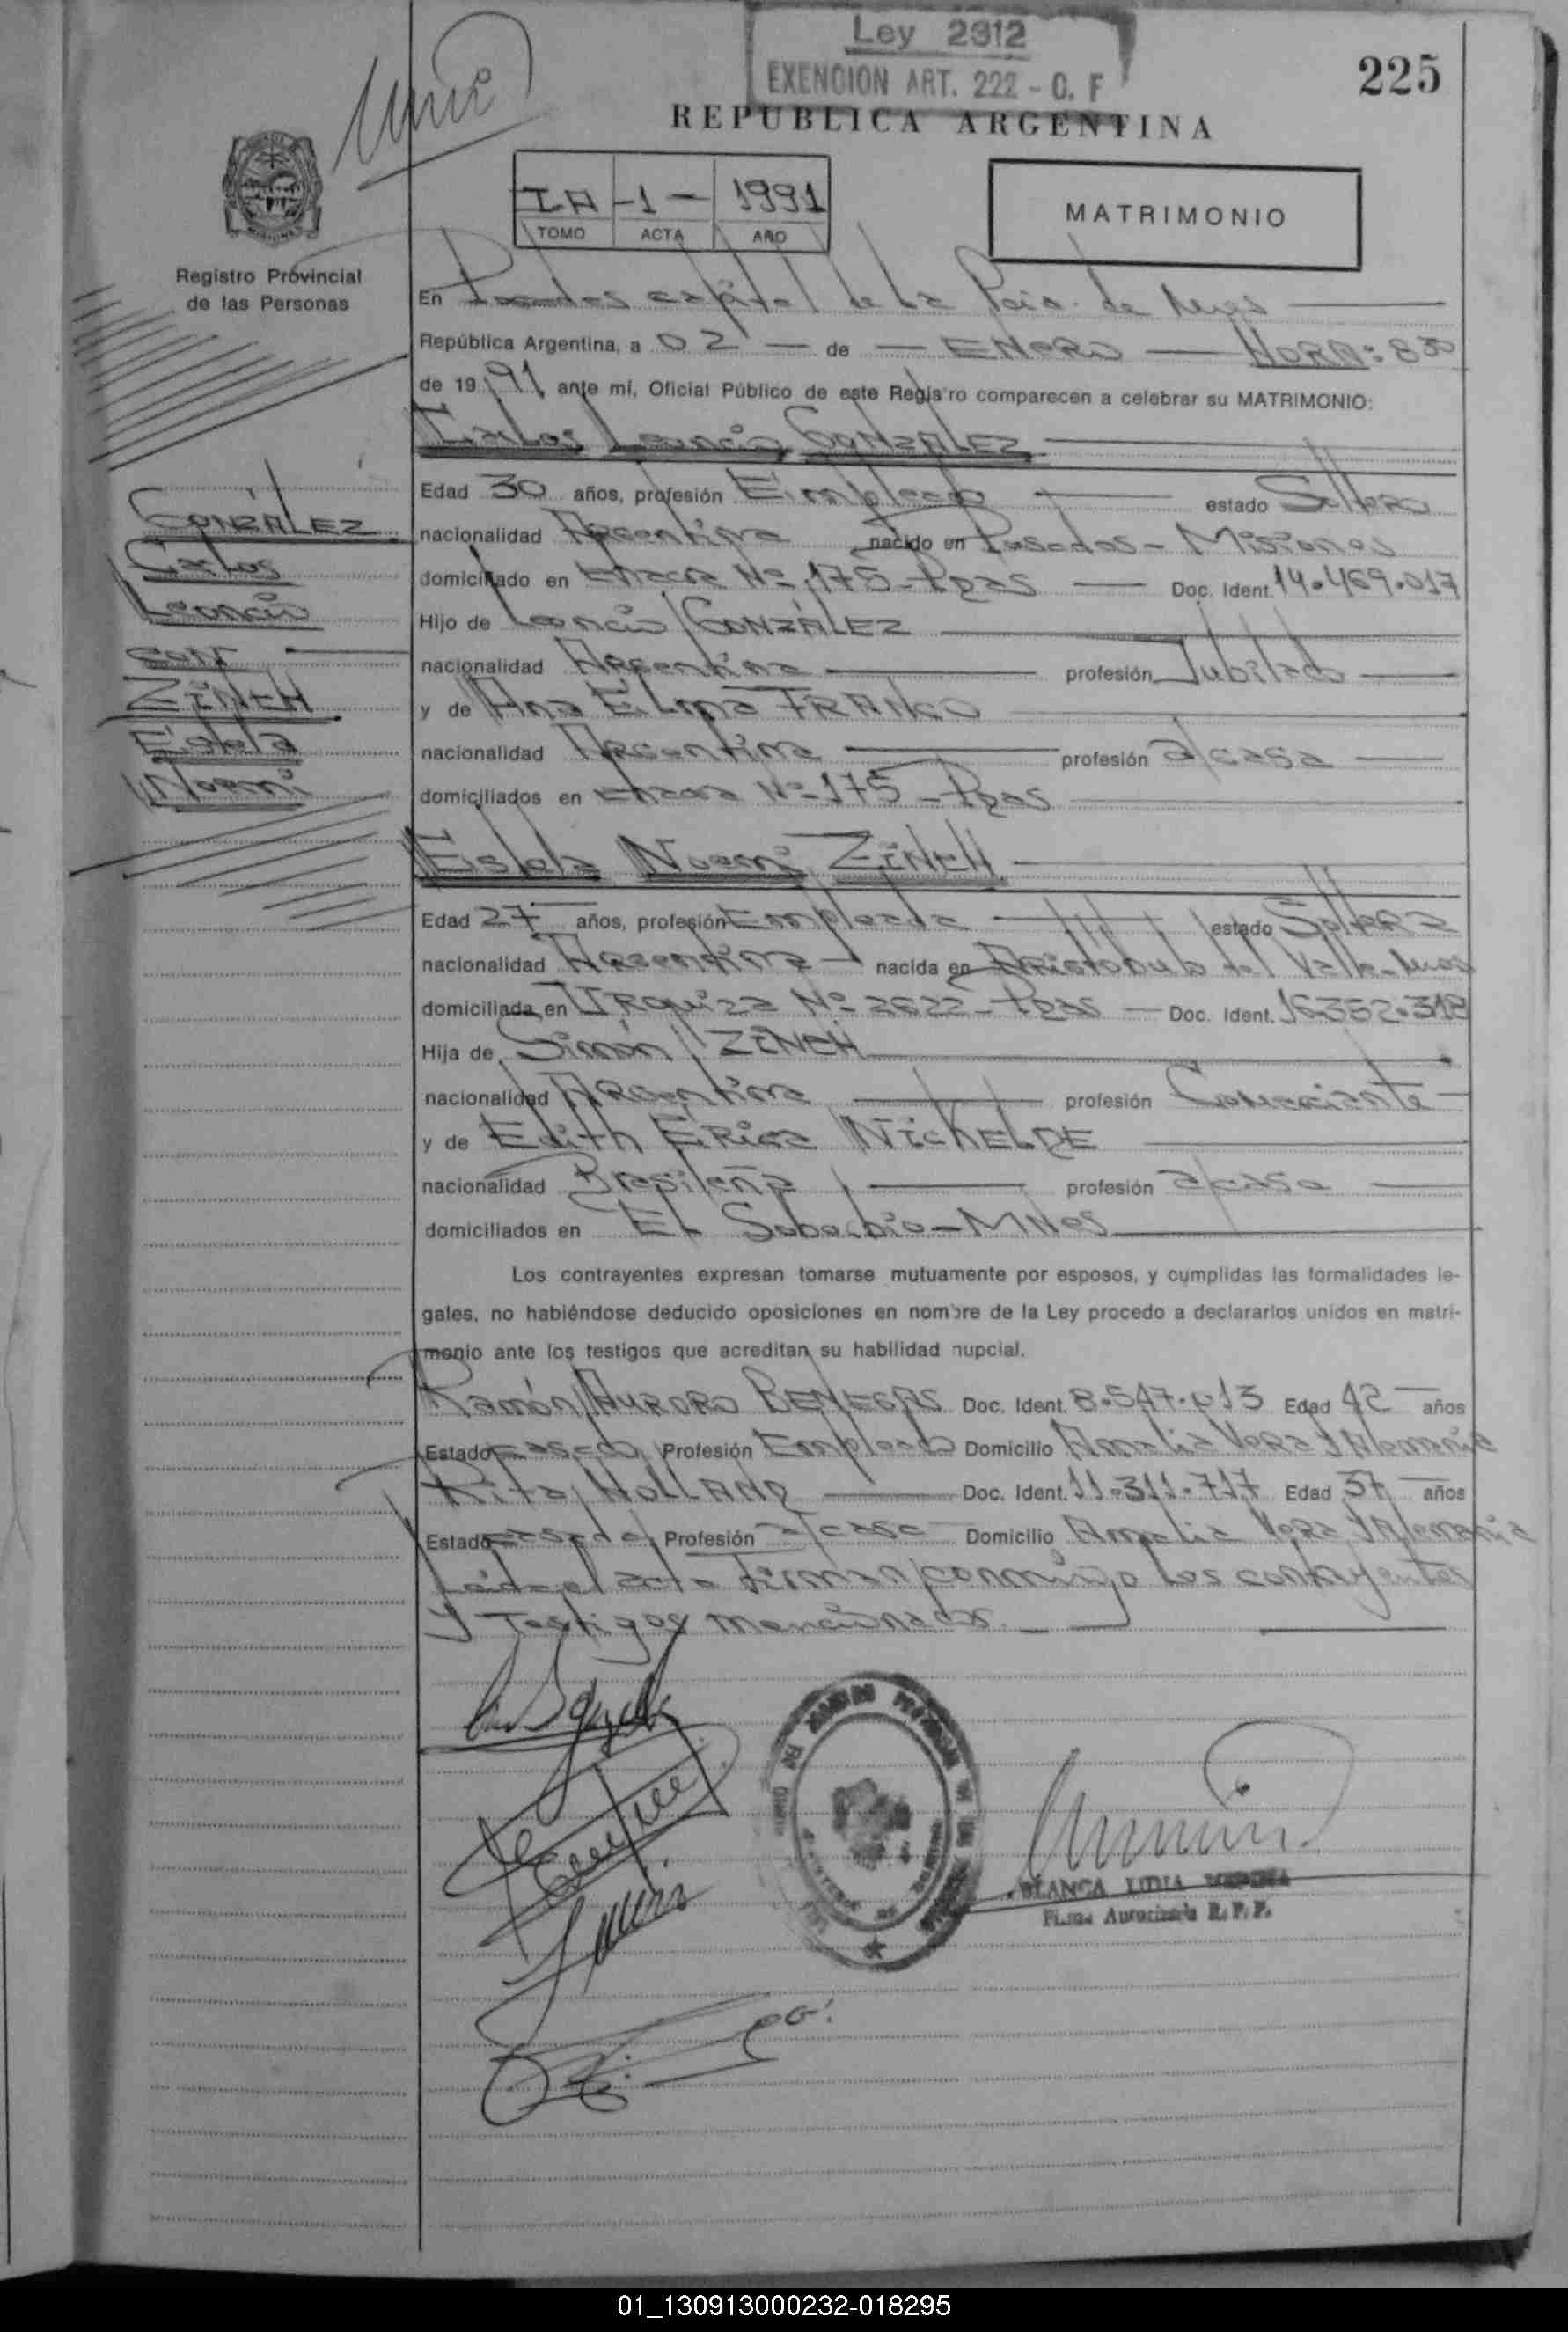 Ley 2912
EXENCION ART. 222 - C. F
225
REPUBLICA ARGENTINA
IA -1- 1991
TOMO ACTA AÑO
MATRIMONIO
Registro Provincial
de las Personas
En Posadas capital de La Pcia. de Mnes
República Argentina, a 02 - de - ENERO - HORA: 8 30
de 1991 ante mí, Oficial Público de este Registro comparecen a celebrar su MATRIMONIO:
Carlos Leoncio GONZALEZ
GONZÁLEZ
Carlos
Leoncio
CON
ZINCH
Estela
Noemí
Edad 30 años, profesión Empleado estado Soltero
nacionalidad Argentina nacido en Posadas - Misiones
domiciliado en Chacra Nº 175 - Pdas Doc. Ident. 14.469.017
Hijo de Leoncio GONZÁLEZ
nacionalidad Argentina profesión Jubilado
y de Ana Elma FRANCO
nacionalidad Argentina profesión a/casa
domiciliados en Chacra Nº 175 - Pdas
Estela Noemí ZINCH
Edad 27 años, profesión Empleada estado Soltera
nacionalidad Argentina nacida en Aristóbulo del Valle - Mnes
domiciliada en Urquiza Nº 2622 - Pdas Doc. Ident. 16.352.318
Hija de Simón ZINCH
nacionalidad Argentina profesión Comerciante
y de Edith Erica NICKELDE
nacionalidad Brasileña profesión a/casa
domiciliados en El Soberbio - MNes
Los contrayentes expresan tomarse mutuamente por esposos, y cumplidas las formalidades le-
gales, no habiéndose deducido oposiciones en nombre de la Ley procedo a declararlos unidos en matri-
monio ante los testigos que acreditan su habilidad nupcial.
Ramón AURORO BENEGAS Doc. Ident. 8.547.613 Edad 42 años
Estado casado Profesión Empleado Domicilio Amalia Vera y Alemania
Rita HOLLAND Doc. Ident. 11.311.717 Edad 37 años
Estado casada Profesión a/casa Domicilio Amalia Vera y Alemania
Leída el acta firman conmigo los contrayentes
y Testigos mencionados.
BLANCA LIDIA MEDINA
Firma Autorizada R. P. P.
01_130913000232-018295